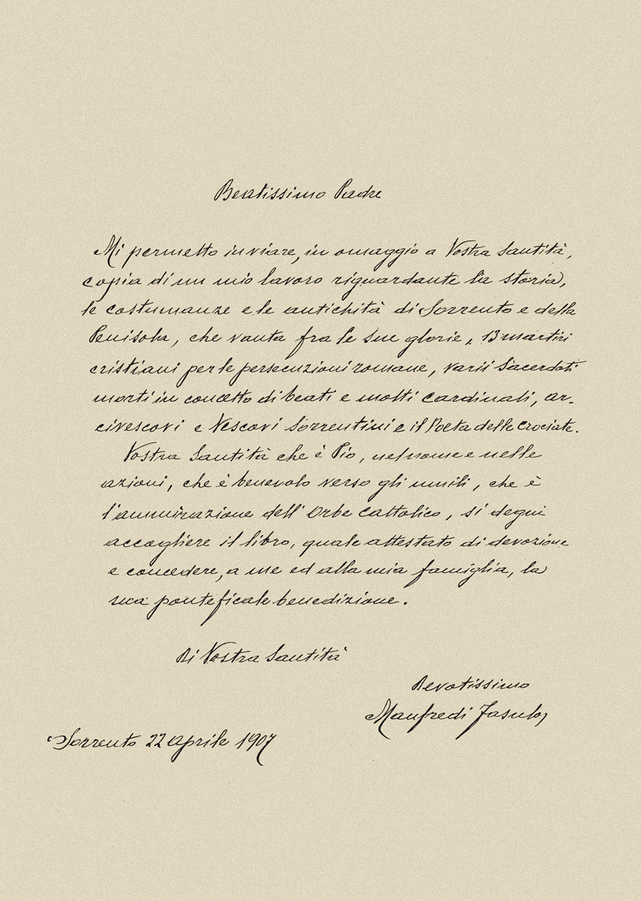 Beatissimo Padre
Mi permetto inviare, in omaggio a Vostra Santità,
copia di un mio lavoro riguardante la storia,
le costumanze e le antichità di Sorrento e della
Penisola, che vanta fra le sue glorie, 13 martiri
cristiani per le persecuzioni romane, varii Sacerdoti
morti in concetto di beati e molti cardinali, ar-
civescovi e Vescovi Sorrentini e il Poeta delle Crociate.
Vostra Santità che è Pio, nel nome e nelle
azioni, che è benevolo verso gli umili, che è
l'ammirazione dell'Orbe Cattolico, si degni
accogliere il libro, quale attestato di devozione
e concedere, a me ed alla mia famiglia, la
sua pontificale benedizione.
Di Vostra Santità
Devotissimo
Manfredi Fasulo
Sorrento 22 aprile 1907